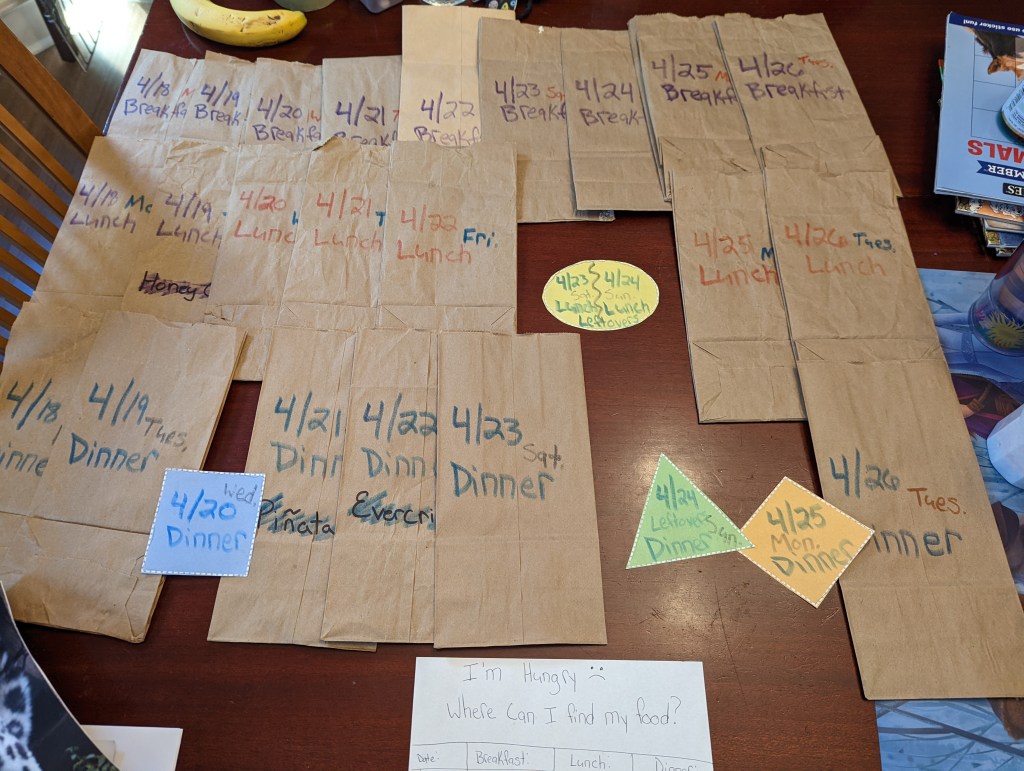 4/18
Breakfa
4/19
Break
4/20
Breakfa
4/21
4/22
Breakf
4/23
Breakf
4/24
Break
4/25 M
Breakf
4/26 Tues.
Breakfast
4/18
Lunch
4/19
Lunch
Honey
4/20
Lunc
4/21 T
Lunch
4/22
Fri.
Lunch
4/23 4/24
Sat. Sun.
Lunch Lunch
Leftovers
4/25 M
Lunch
4/26 Tues.
Lunch
4/18
inne
4/19
Tues.
Dinner
4/20 Wed
Dinner
4/21
Dinn
Piñata
4/22
Dinn
Evercri
4/23
Sat.
Dinner
4/24
Leftovers
Sun.
Dinner
4/25
Mon.
Dinner
4/26 Tues.
inner
I'm Hungry
Where can I find my food?
Date: Breakfast: Lunch: Dinner:
use sticker fun!
MALS
MBER